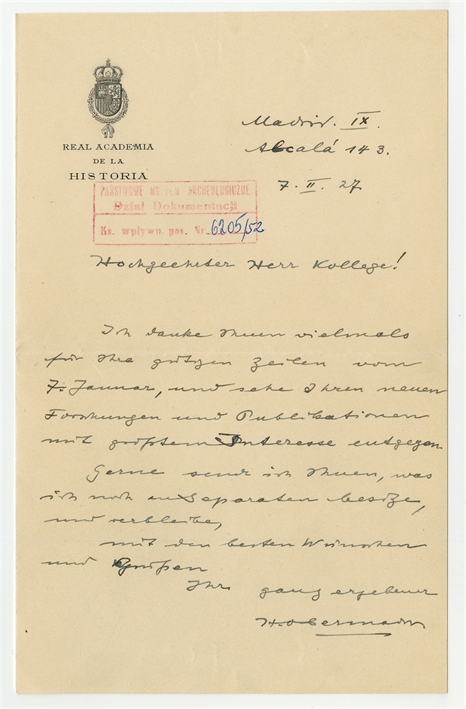 REAL ACADEMIA
DE LA
HISTORIA
Madrid. IX.
Alcalá 143.
7. II. 27
PAŃSTWOWE MUZEUM ARCHEOLOGICZNE
Dział Dokumentacji
Ks. wpływu. pos. Nr. 6205/52
Hochgeehrter Herr Kollege!
Ich danke Ihnen vielmals
für Ihre gütigen Zeilen vom
7. Januar, und sehe Ihren neuen
Forschungen und Publikationen
mit größtem Interesse entgegen.
Gerne send ich Ihnen, was
ich noch an Separaten besitze,
und verbleibe,
mit den besten Wünschen
und Grüßen
Ihr ganz ergebener
H. Obermaier